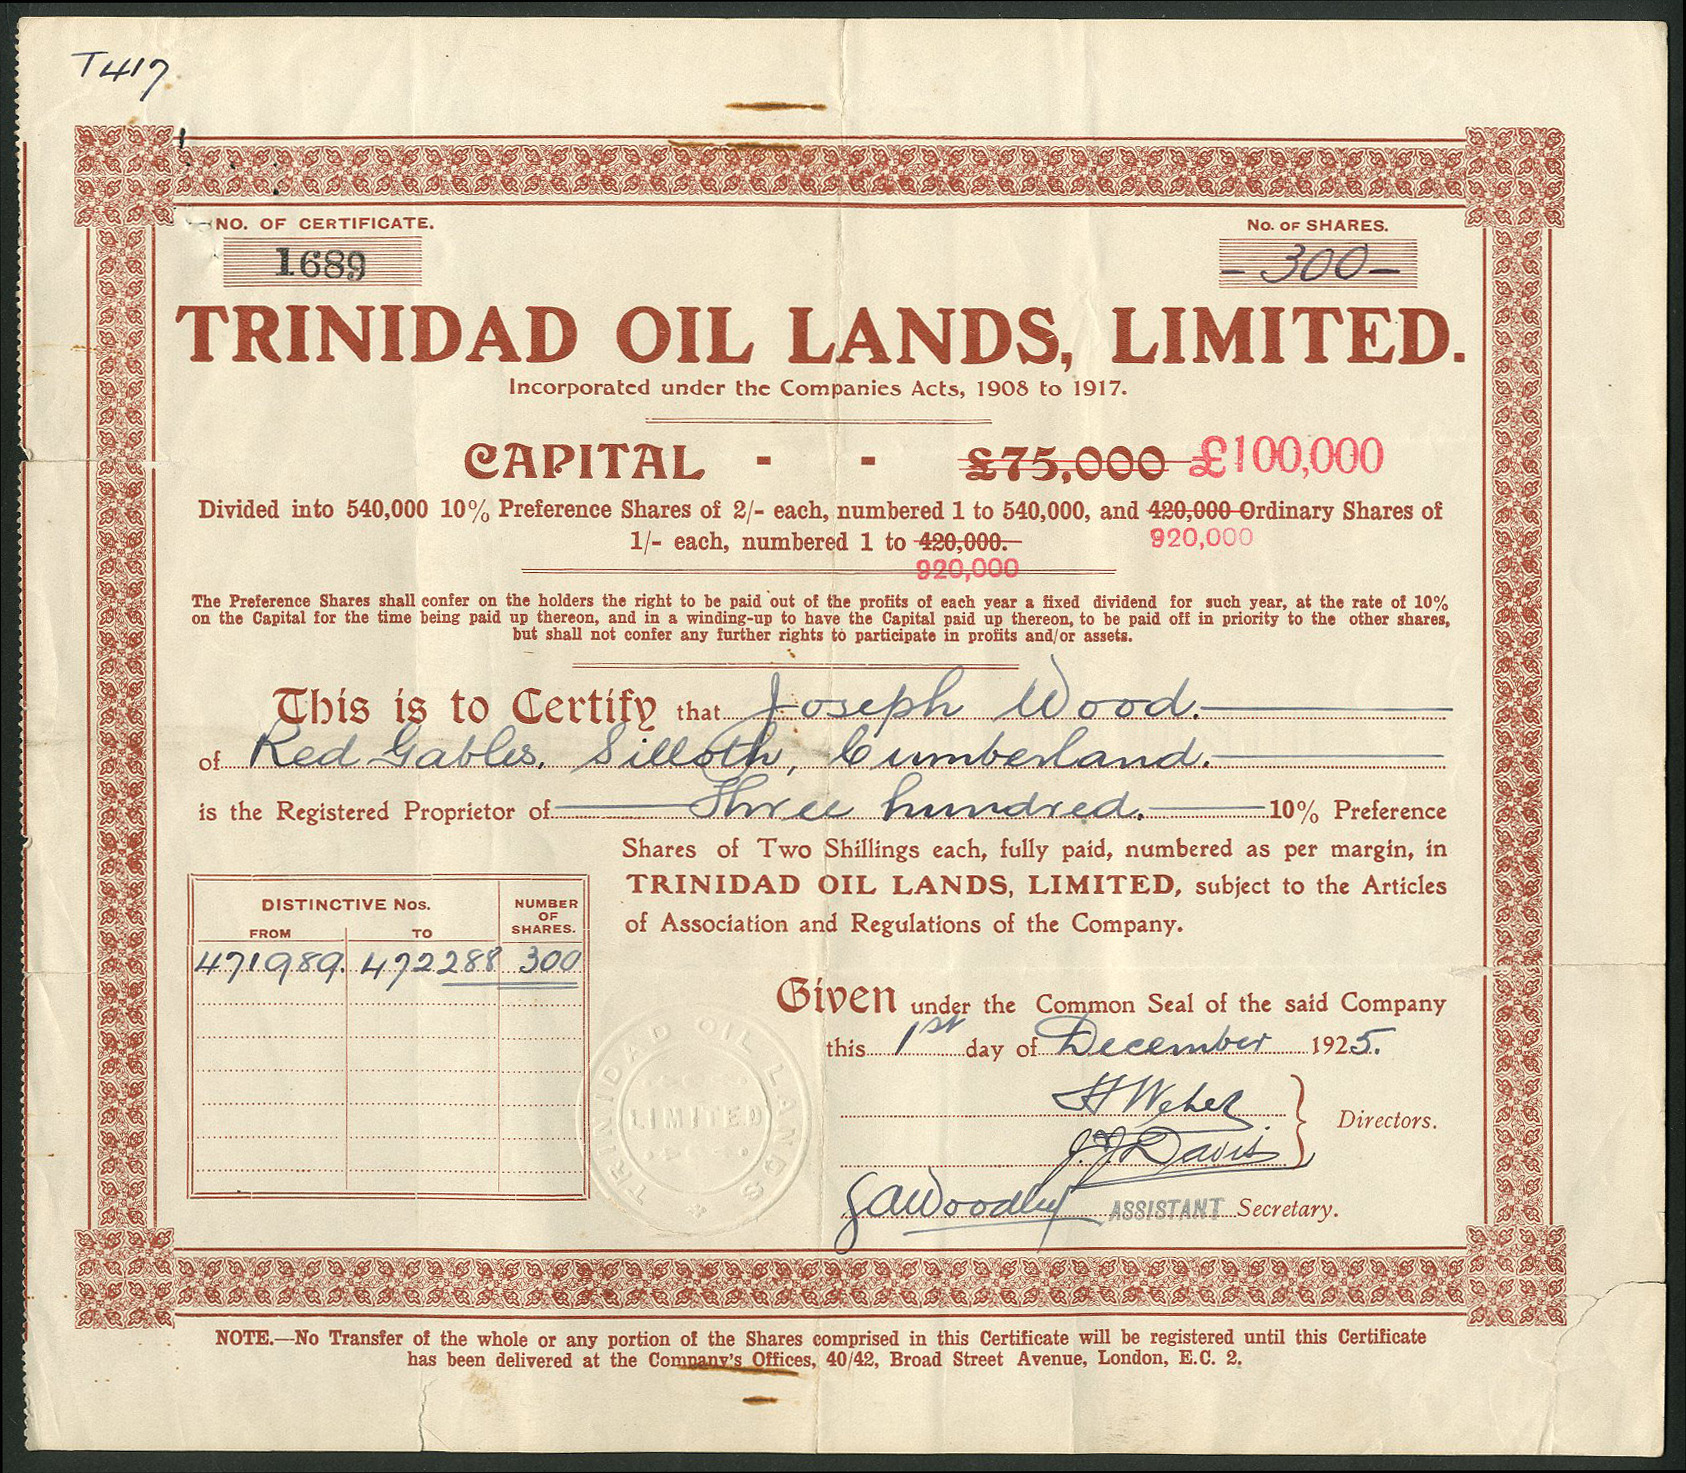 T417
NO. OF CERTIFICATE.
1689
No. OF SHARES.
- 300 -
TRINIDAD OIL LANDS, LIMITED.
Incorporated under the Companies Acts, 1908 to 1917.
CAPITAL - - £75,000 £100,000
Divided into 540,000 10% Preference Shares of 2/- each, numbered 1 to 540,000, and 420,000 Ordinary Shares of
920,000
1/- each, numbered 1 to 420,000.
920,000
The Preference Shares shall confer on the holders the right to be paid out of the profits of each year a fixed dividend for such year, at the rate of 10%
on the Capital for the time being paid up thereon, and in a winding-up to have the Capital paid up thereon, to be paid off in priority to the other shares,
but shall not confer any further rights to participate in profits and/or assets.
This is to Certify that Joseph Wood.
of Red Gables, Silloth, Cumberland.
is the Registered Proprietor of Three hundred. 10% Preference
Shares of Two Shillings each, fully paid, numbered as per margin, in
TRINIDAD OIL LANDS, LIMITED, subject to the Articles
of Association and Regulations of the Company.
DISTINCTIVE Nos.
FROM TO
NUMBER
OF
SHARES.
471989. 472288 300
Given under the Common Seal of the said Company
this 1st day of December 1925.
TRINIDAD OIL LANDS
LIMITED
H Weber
J. J. Davis
Directors.
G A Woodley ASSISTANT Secretary.
NOTE.—No Transfer of the whole or any portion of the Shares comprised in this Certificate will be registered until this Certificate
has been delivered at the Company's Offices, 40/42, Broad Street Avenue, London, E.C. 2.